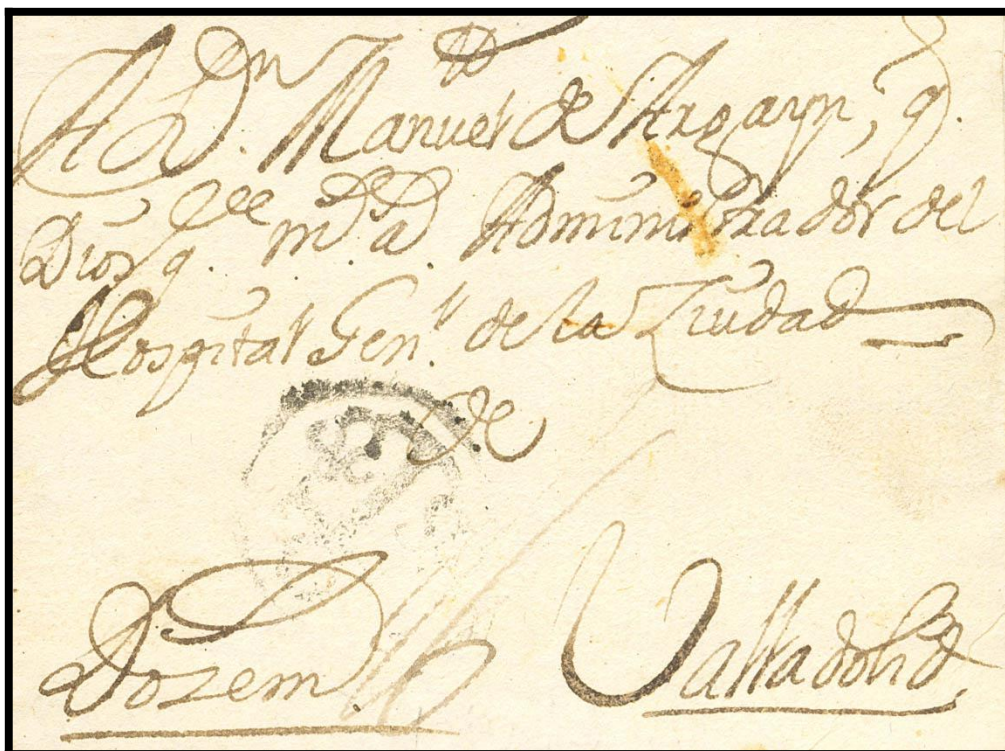 A Dn. Manuel de Argayn, q.
Dios q. gue ms. as. Administrador del
Hospital Genl. de la Ziudad
de
Valladolid